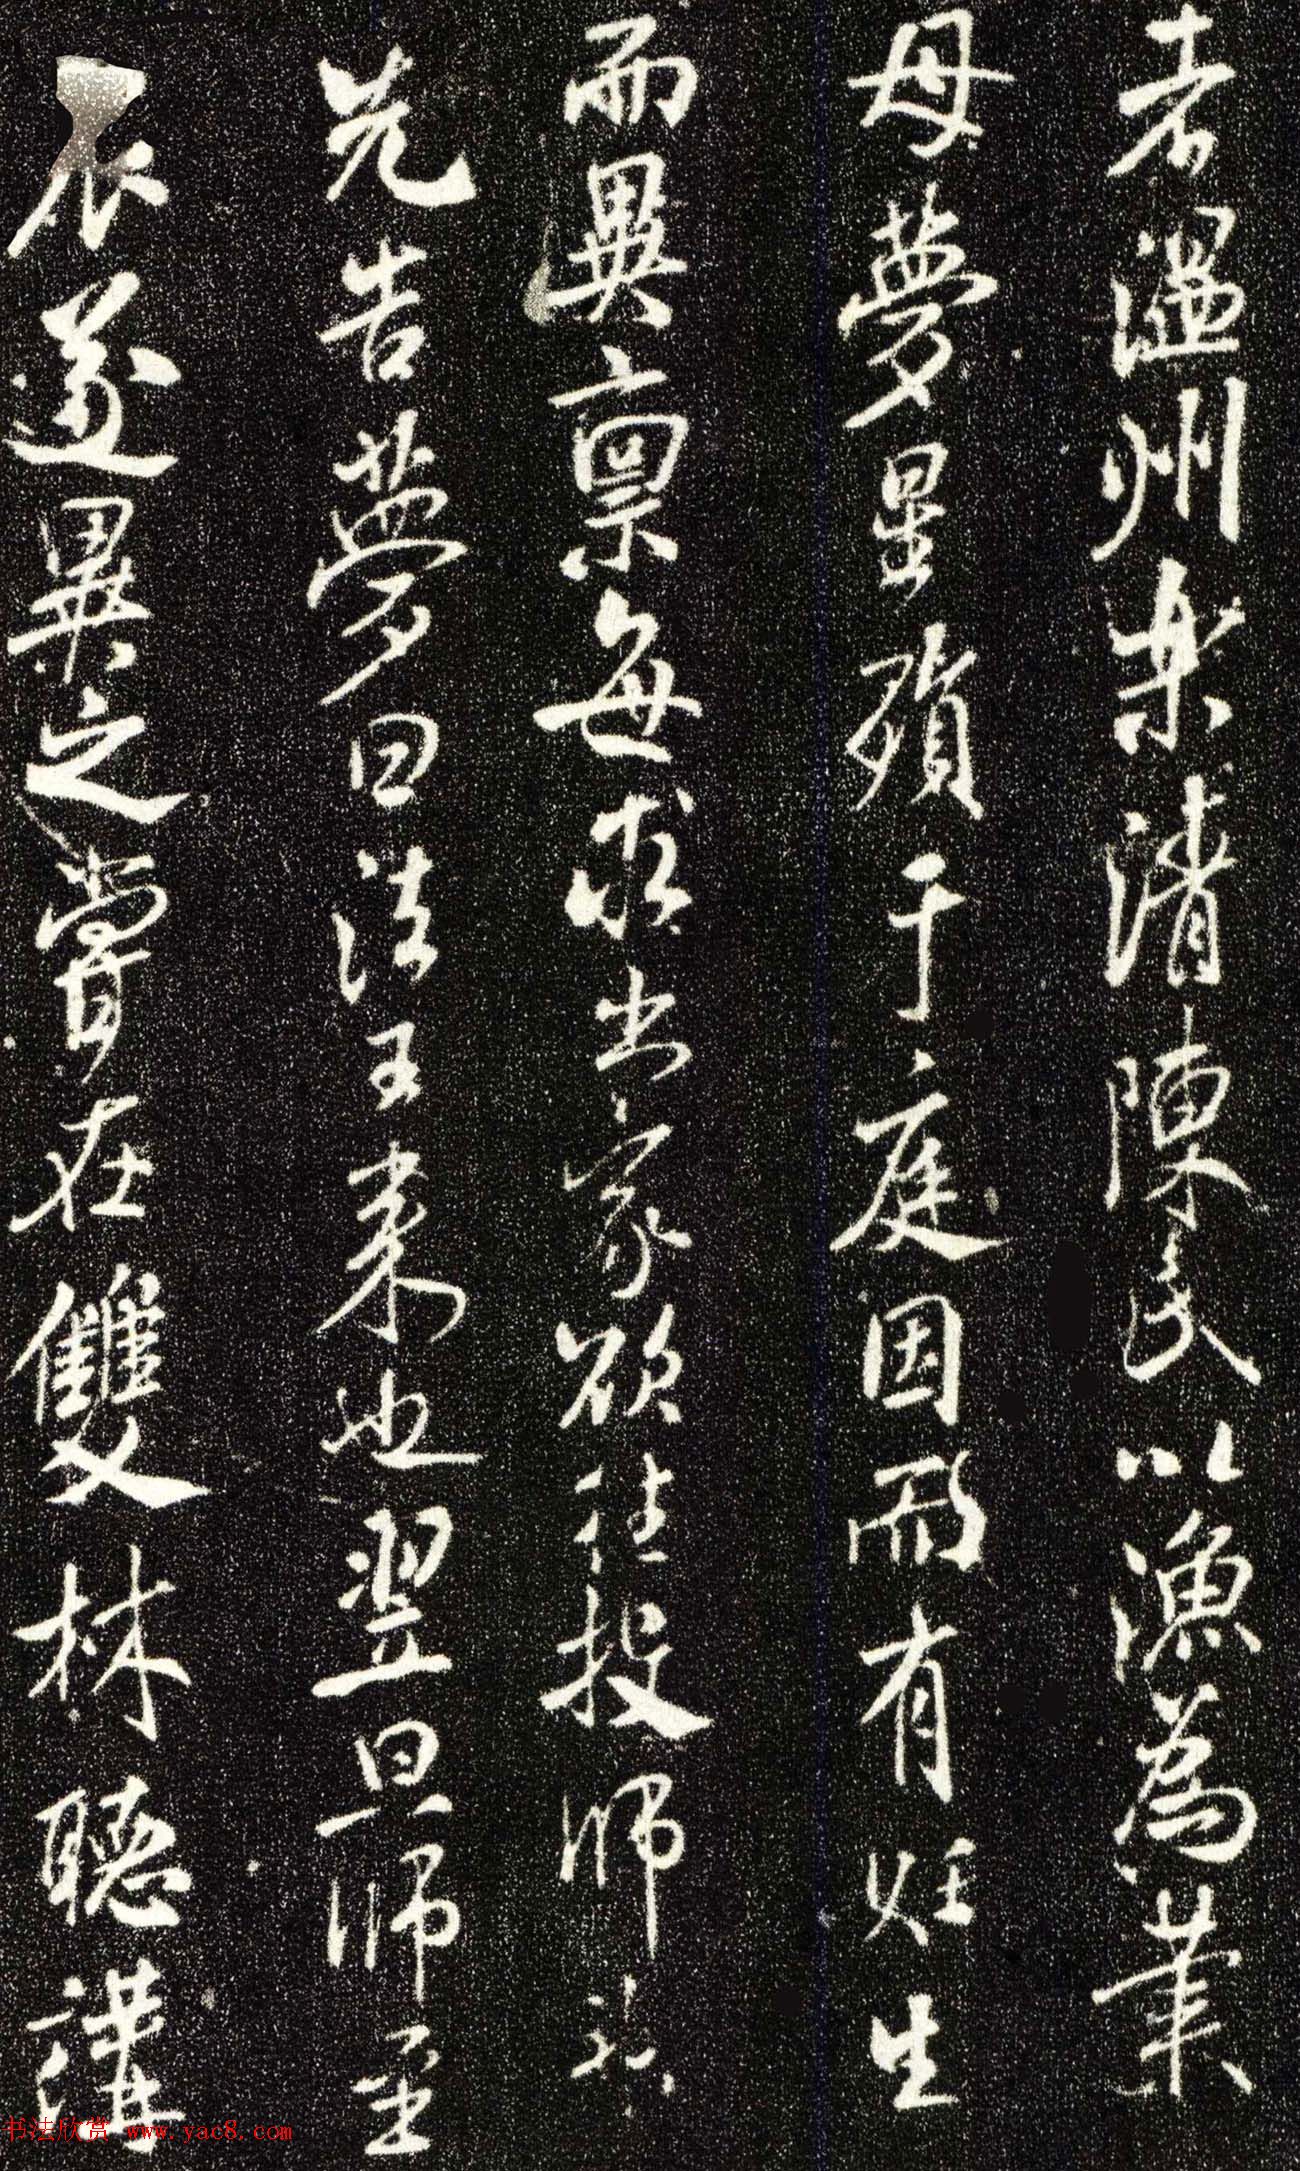 者溫州樂清陳氏以漁為業
母夢星殞于庭因而有妊生
而異禀每求出家欲往投師
先告夢曰法王來也翌日師至
依遂異之嘗在雙林聽講
书法欣赏 www.yac8.com